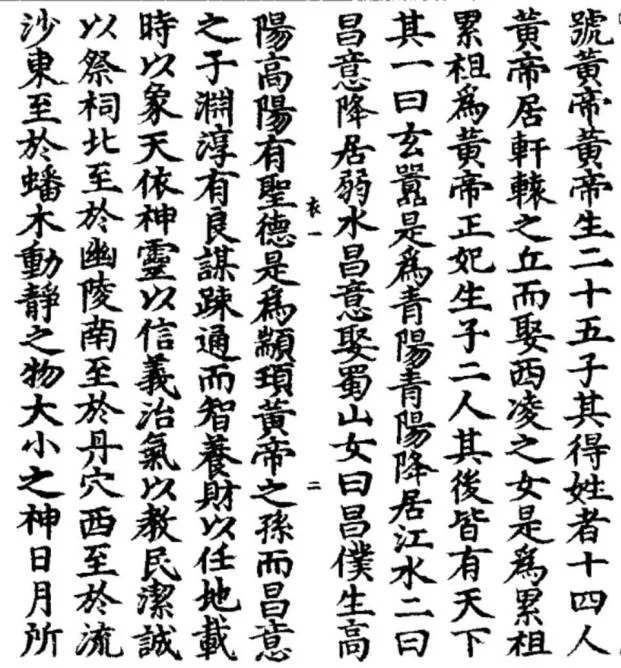 號黃帝黃帝生二十五子其得姓者十四人
黃帝居軒轅之丘而娶西凌之女是爲累祖
累祖爲黃帝正妃生子二人其後皆有天下
其一曰玄囂是爲青陽青陽降居江水二曰
昌意降居弱水昌意娶蜀山女曰昌僕生高
一 二
陽高陽有聖德是爲顓頊黃帝之孫而昌意
之子淵淳有良謀踈通而智養財以任地載
時以象天依神靈以信義治氣以教民潔誠
以祭祠北至於幽陵南至於丹穴西至於流
沙東至於蟠木動靜之物大小之神日月所